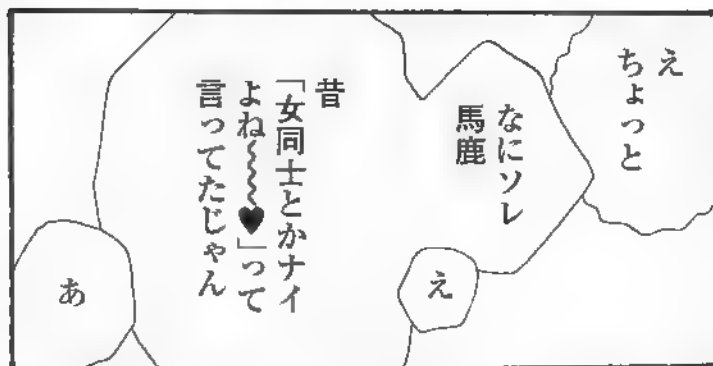 え
ちょっと
なにソレ
馬鹿
え
昔
「女同士とかナイ
よね〜〜〜♥」って
言ってたじゃん
あ